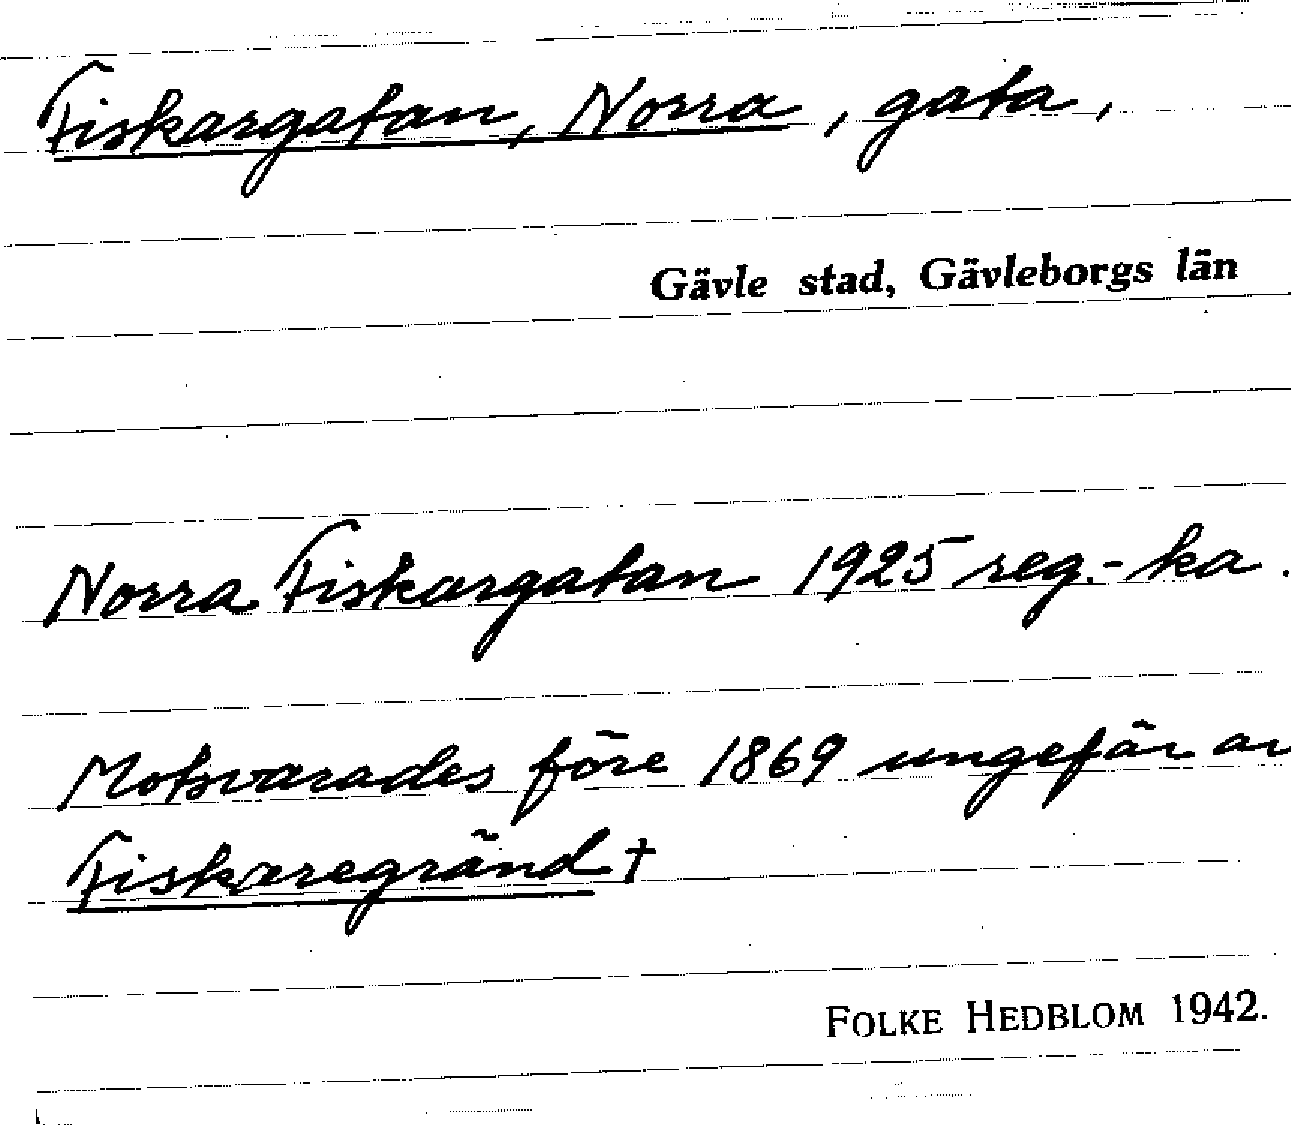 Fiskargatan, Norra, gata,
Gävle stad, Gävleborgs län
Norra Fiskargatan 1925 reg.-ka.
Motsvarades före 1869 ungefär av
Fiskaregränd †
FOLKE HEDBLOM 1942.